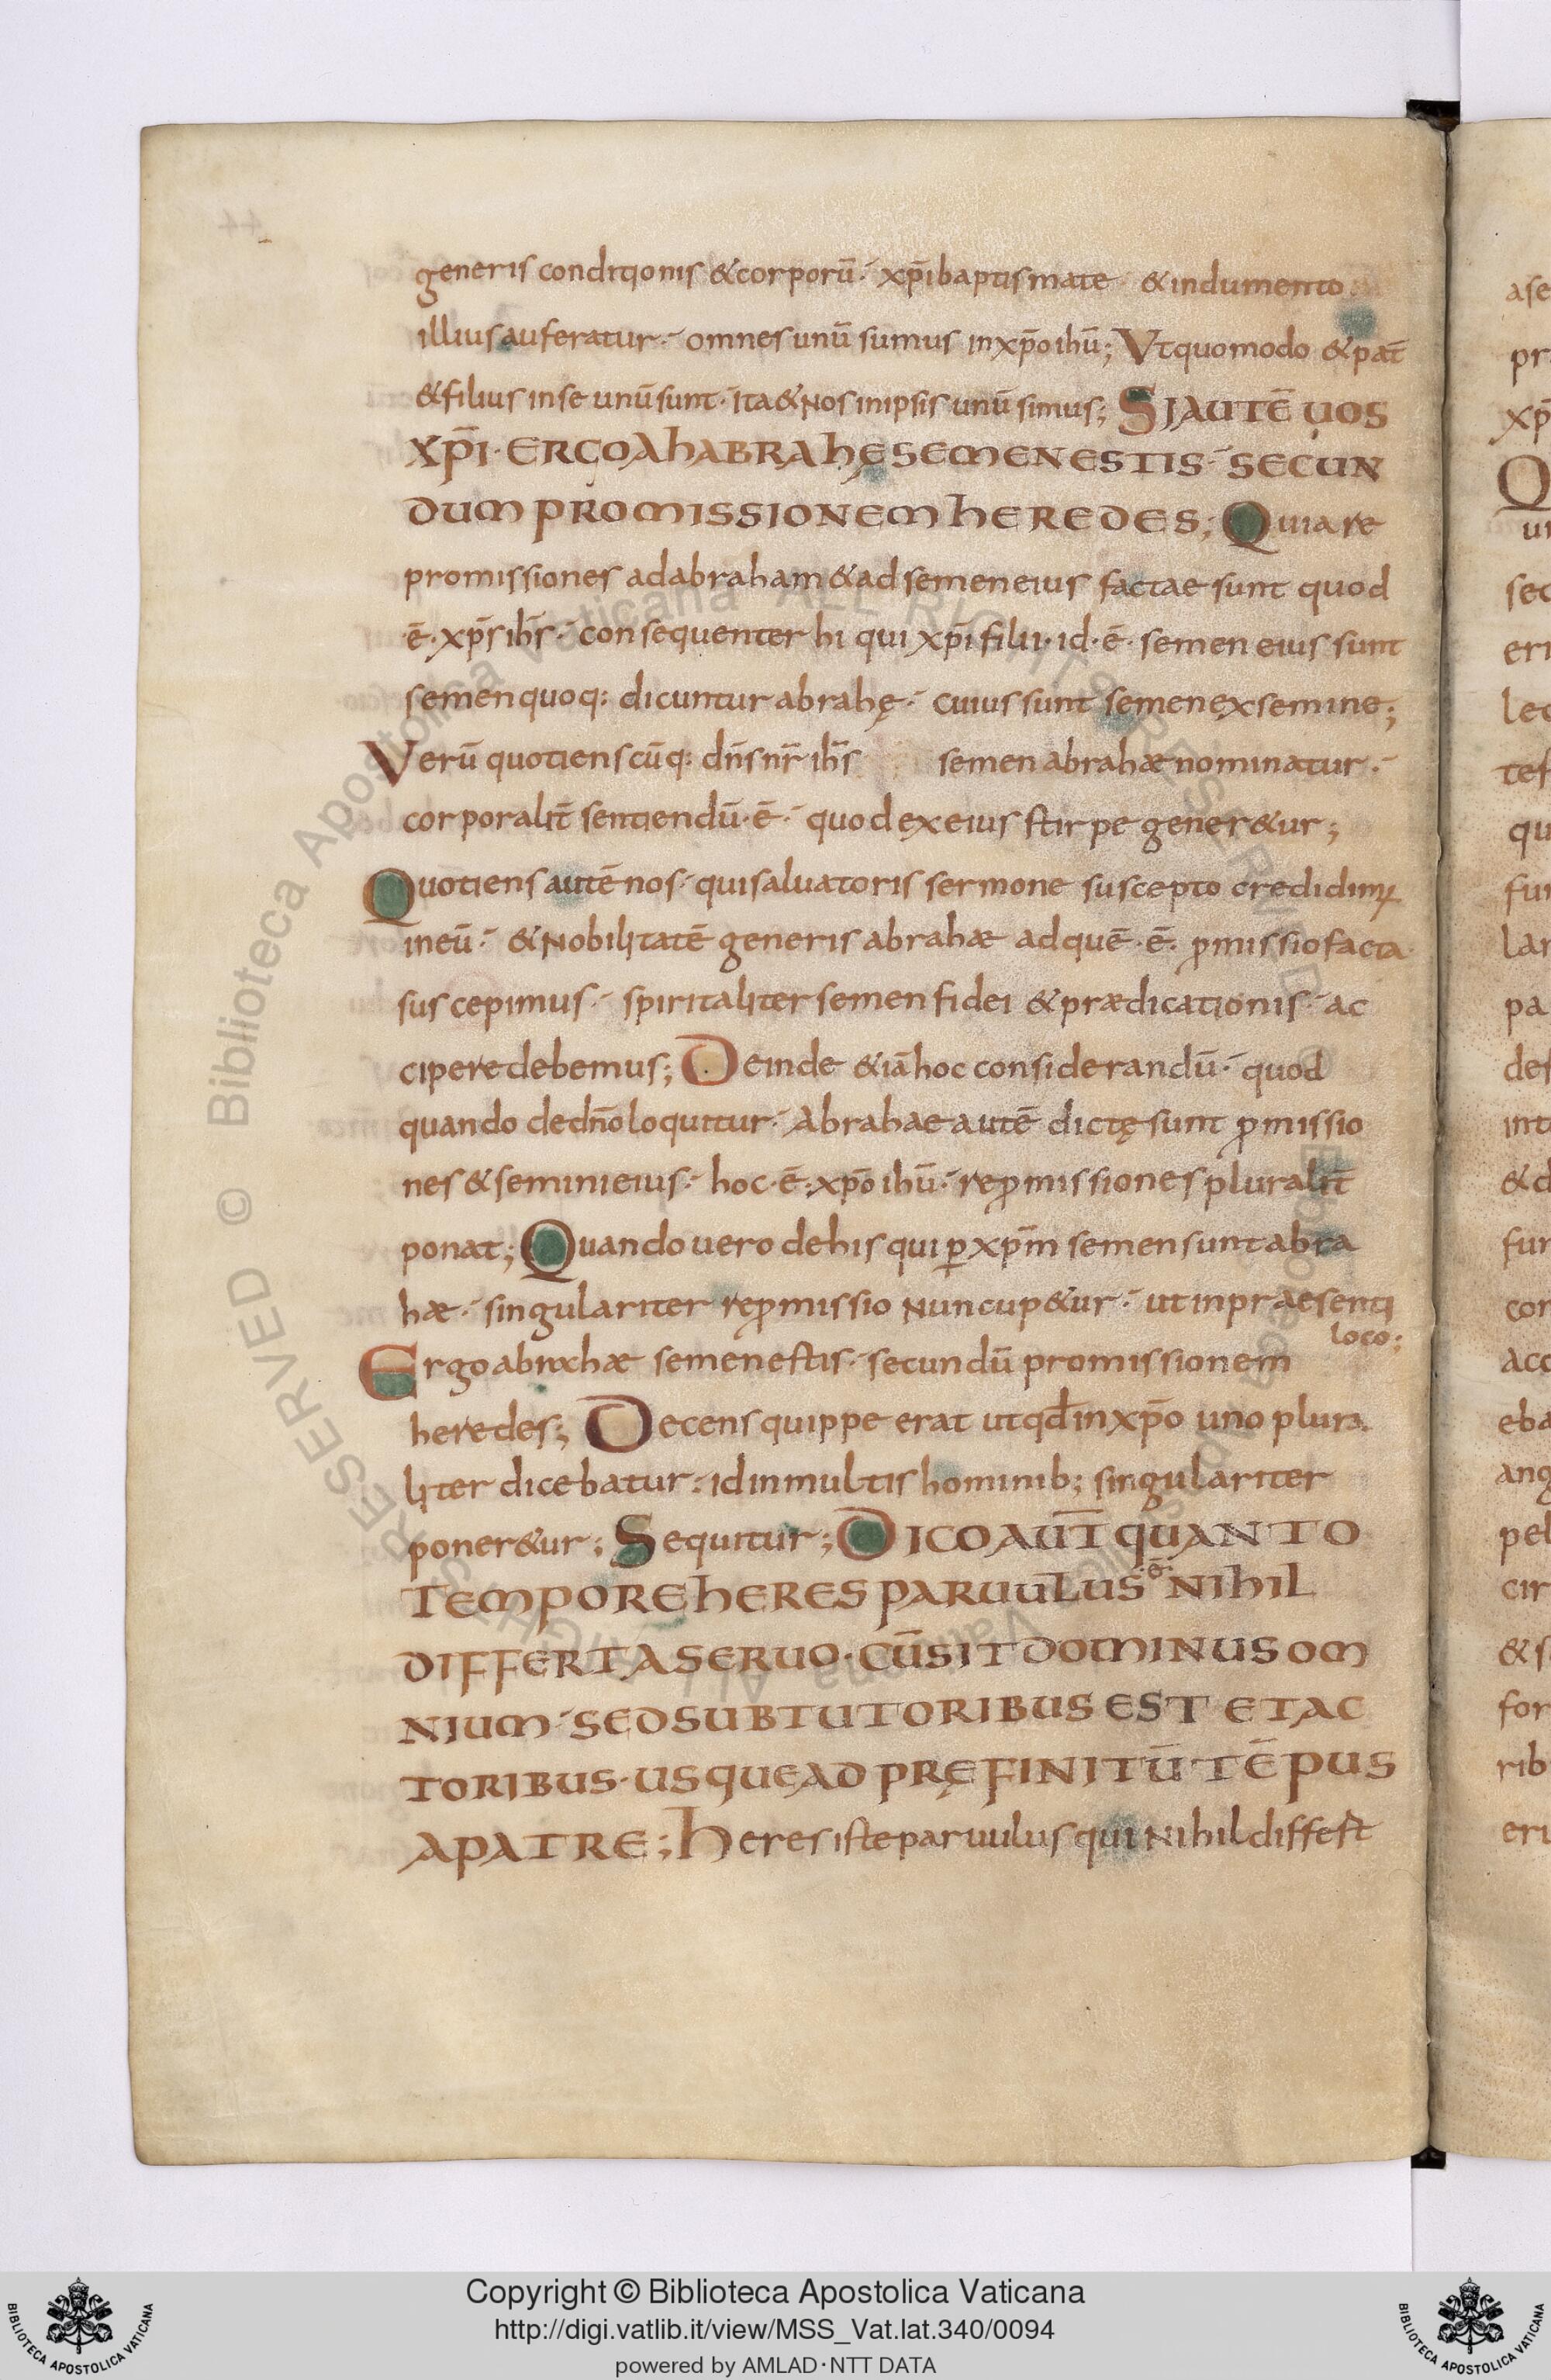 generis conditionis & corporū· xp̄i baptismate & indumento
illius auferatur· omnes unū sumus in xp̄o ihū; Vt quomodo & pat̄
& filius in se unū sunt· Ita & Nos in ipsis unū simus; SI AUTĒ UOS
XP̄I· ERGO AhABRAhĘ SEMEN ESTIS· SECUN
DUM PROMISSIONEM hEREDES; Quia re
promissiones ad abraham & ad semen eius factae sunt quod
·ē· xp̄s ih̄s· consequenter hi qui xp̄i filii· id·ē· semen eius sunt
semen quoq: dicuntur abrahę· cuius sunt semen ex semine;
Verū quotienscūq: dn̄s nr̄ ih̄s semen abrahæ nominatur·
corporalit̄ sentiendū·ē· quod ex eius stirpe gener&ur;
Quotiens autē nos· qui saluatoris sermone suscepto credidim;
in eū· & Nobilitatē generis abrahæ ad quē·ē· ꝓmissio facta
suscepimus· spiritaliter semen fidei & prædicationis· ac
cipere debemus; Deinde &iā hoc considerandū· quod
quando de dn̄o loquitur· Abrahae autē dictę sunt ꝓmissio
nes & semini eius· hoc·ē· xp̄o ihū· reꝓmissiones pluralit̄
ponat; Quando uero de his qui ꝑ xp̄m semen sunt abra
hæ· singulariter reꝓmissio Nuncup&ur· ut in praesenti
loco;
Ergo abrachæ semen estis· secundū promissionem
heredes; Decens quippe erat ut qd̄ in xp̄o uno plura
liter dicebatur· id in multis hominib; singulariter
poner&ur; Sequitur; DICO AUT̄ QUANTO
TEMPORE hERES PARUULUS ·ē· NIhIL
DIFFERT A SERUO· CŪ SIT DOMINUS OM
NIUM· SED SUB TUTORIBUS EST ET AC
TORIBUS· USQUE AD PRĘFINITŪ TĒPUS
A PATRE; heres iste paruulus qui Nihil differt
44
ase
pr
xp̄
Q
ui
sec
eri
lec
tef
qu
fur
lar
pa
def
int
& d
fur
cor
acc
eba
ang
pel
cir
& s
for
rib
eri
© Biblioteca Apostolica Vaticana ALL RIGHTS RESERVED
Copyright © Biblioteca Apostolica Vaticana
http://digi.vatlib.it/view/MSS_Vat.lat.340/0094
powered by AMLAD·NTT DATA
BIBLIOTECA APOSTOLICA VATICANA
BIBLIOTECA APOSTOLICA VATICANA